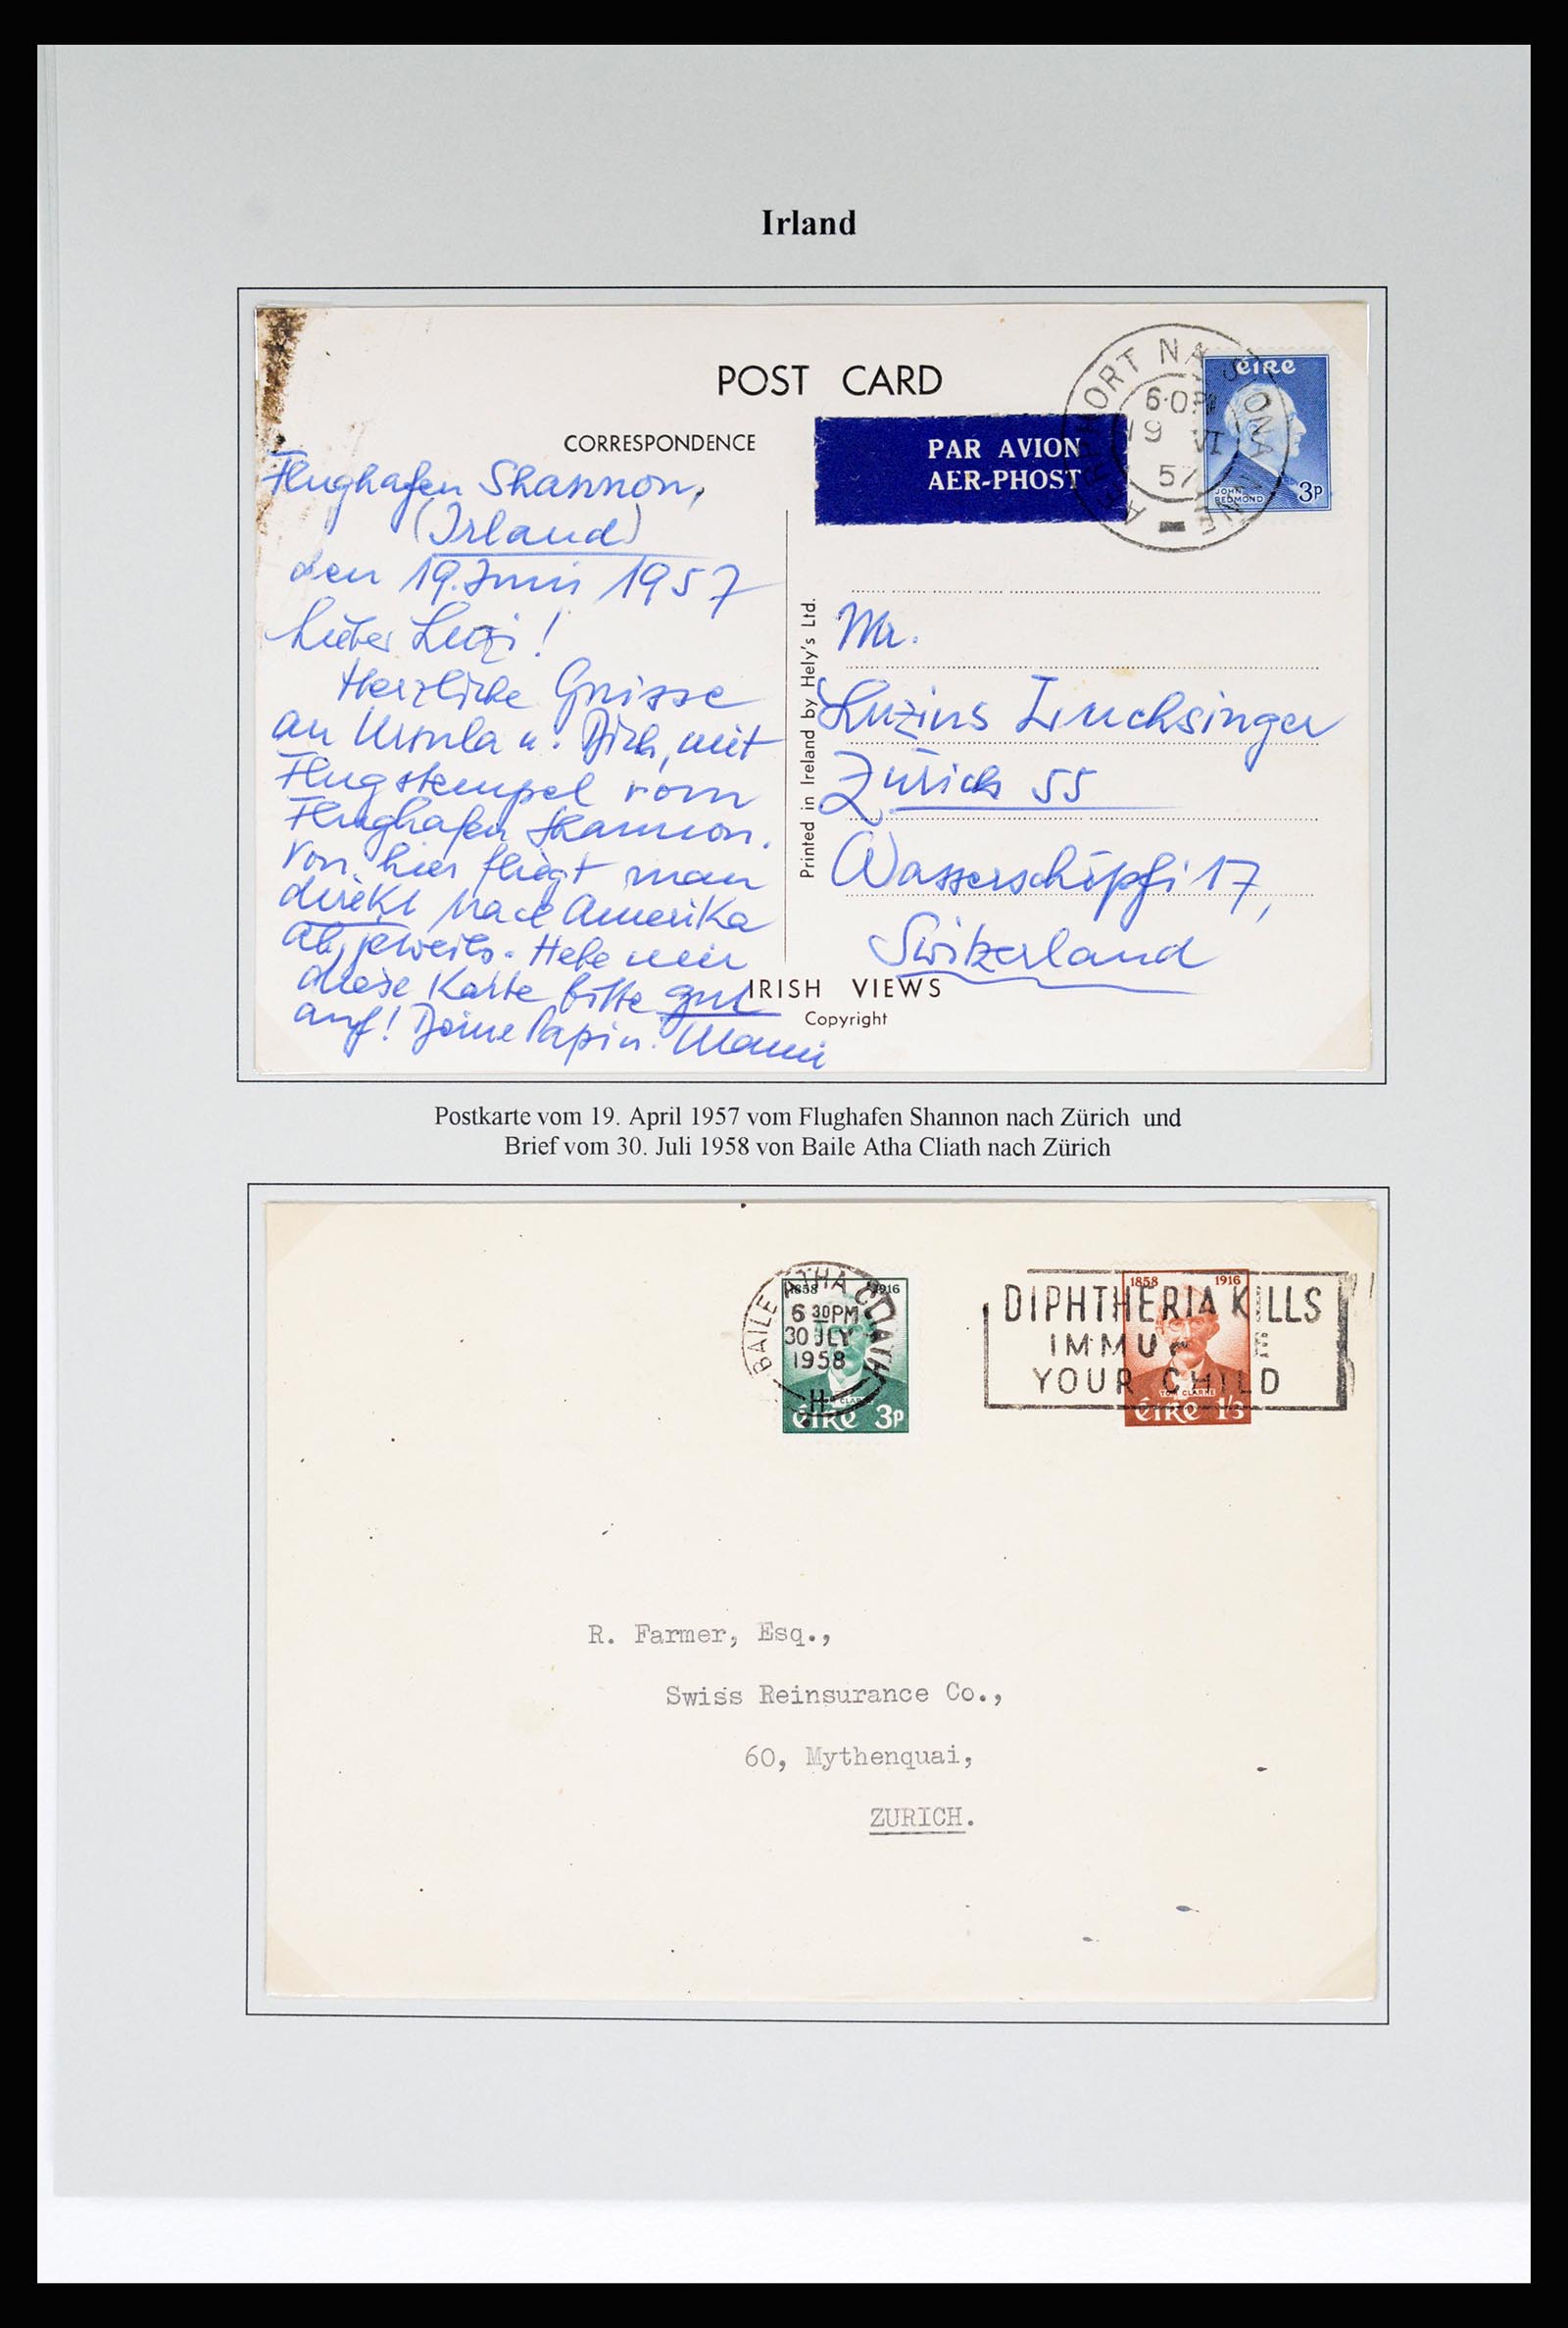 Irland
POST CARD
CORRESPONDENCE
PAR AVION
AER-PHOST
6·0PM
19 VI
57
ÉIRE
JOHN
REDMOND
3P
Flughafen Shannon,
(Irland)
den 19. Juni 1957
Lieber Luzi!
Herzliche Grüsse
an Ursula u. Dich, mit
Flugstempel vom
Flughafen Shannon.
Von hier fliegt man
direkt nach Amerika
ab, jeweils. Hebe mir
diese Karte bitte gut
auf! Deine Papi u. Mami
Printed in Ireland by Hely's Ltd.
Mr.
Luzius Luchsinger
Zürich 55
Wasserschöpfi 17,
Switzerland
IRISH VIEWS
Copyright
Postkarte vom 19. April 1957 vom Flughafen Shannon nach Zürich und
Brief vom 30. Juli 1958 von Baile Atha Cliath nach Zürich
BAILE ATHA CLIATH
6 30PM
30 JLY
1958
H
1858 1916
ÉIRE 3P
DIPHTHERIA KILLS
IMMUNISE
YOUR CHILD
1858 1916
TOM CLARKE
ÉIRE 1/3
R. Farmer, Esq.,
Swiss Reinsurance Co.,
60, Mythenquai,
ZURICH.